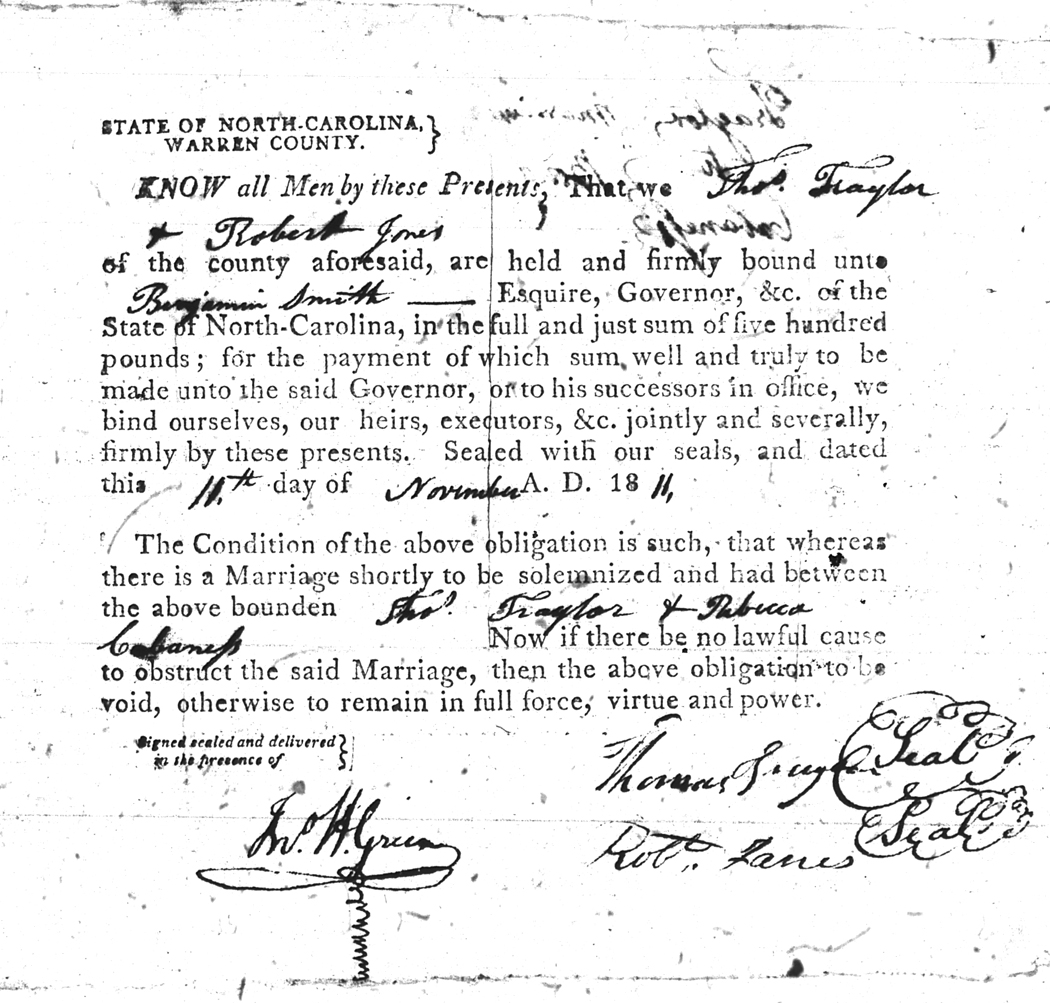 STATE OF NORTH-CAROLINA,}
WARREN COUNTY.
KNOW all Men by these Presents, That we Thos. Traylor
& Robert Jones
of the county aforesaid, are held and firmly bound unto
Benjamin Smith —— Esquire, Governor, &c. of the
State of North-Carolina, in the full and just sum of five hundred
pounds; for the payment of which sum, well and truly to be
made unto the said Governor, or to his successors in office, we
bind ourselves, our heirs, executors, &c. jointly and severally,
firmly by these presents. Sealed with our seals, and dated
this 11.th day of November A. D. 18 11,
The Condition of the above obligation is such, that whereas
there is a Marriage shortly to be solemnized and had between
the above bounden Thos. Traylor & Rebecca
Cabaness Now if there be no lawful cause
to obstruct the said Marriage, then the above obligation to be
void, otherwise to remain in full force, virtue and power.
Signed sealed and delivered}
in the presence of
Thomas Traylor Seal
Jno. H. Green
Robt. Jones Seal